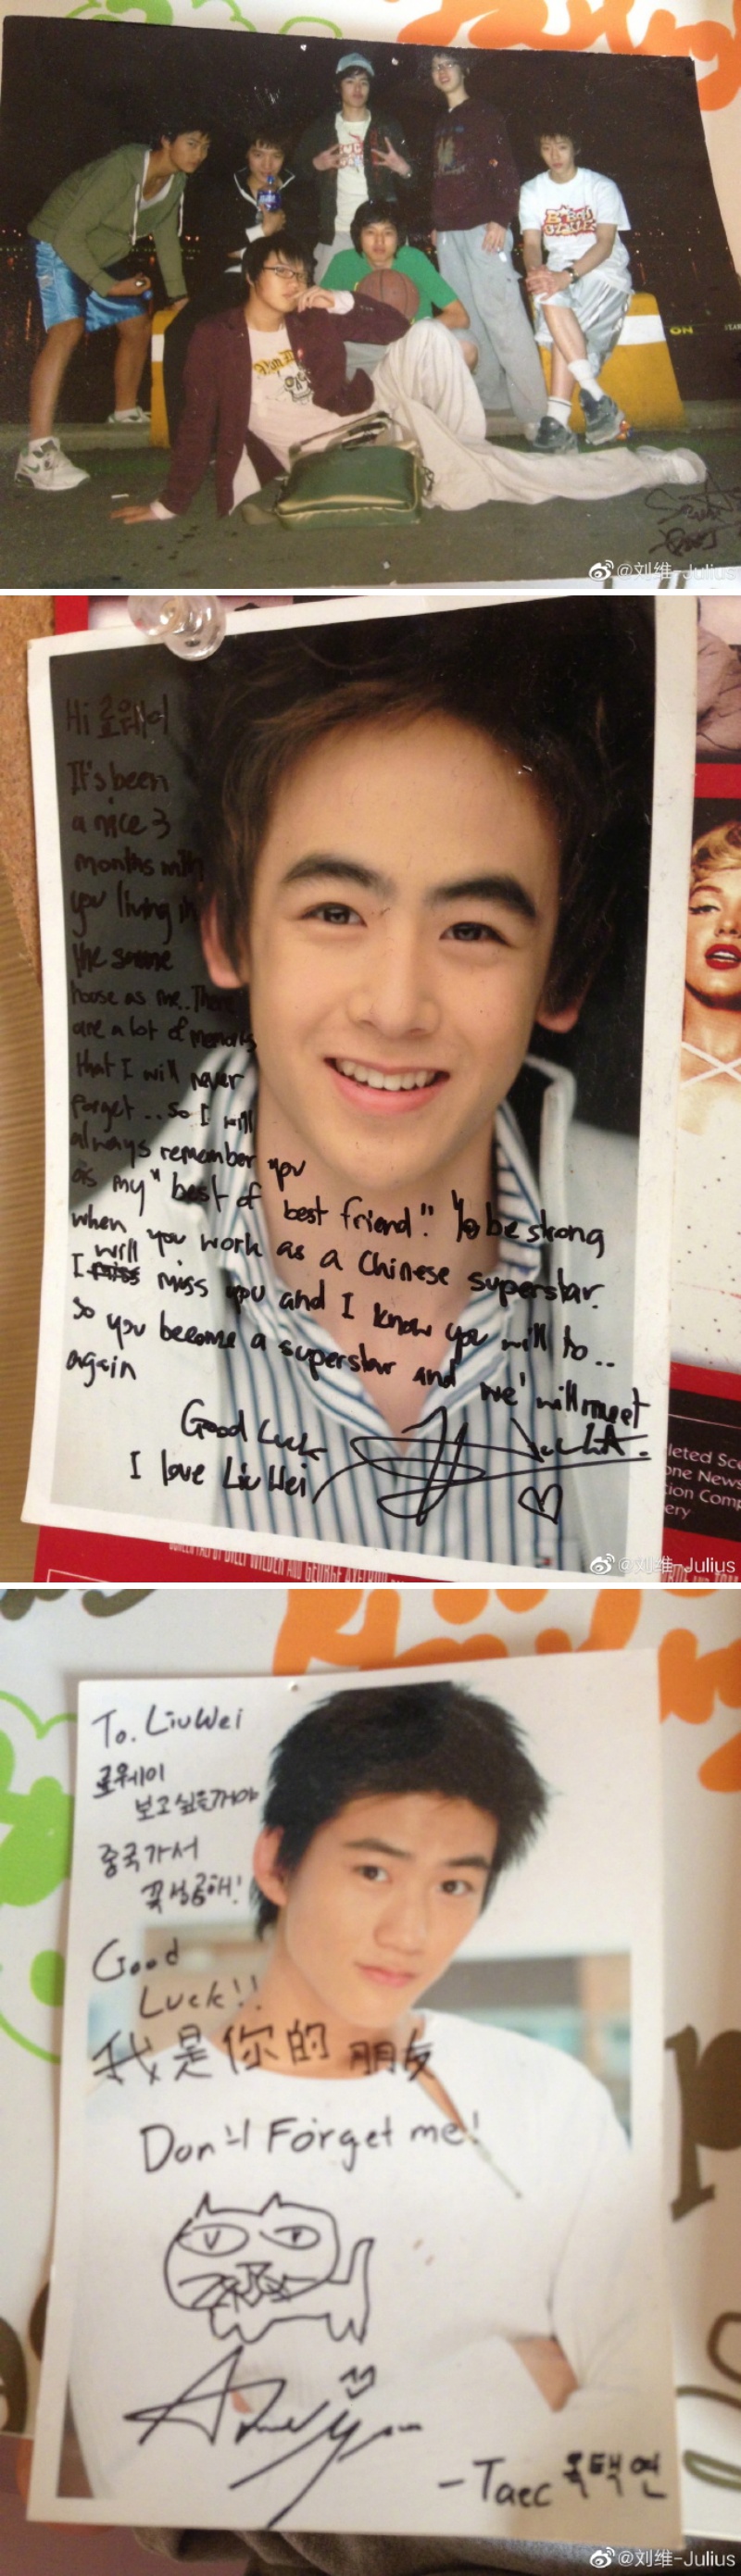 ON
@刘维-Julius
Hi 로웨이
It's been
a nice 3
months with
you living in
the same
house as me.. There
are a lot of memories
that I will never
forget.. so I will
always remember you
as my "best of best friend". be strong
when you work as a Chinese superstar.
I will miss you and I know you will to..
so you become a superstar and we'll meet
again
Good Luck
I love Liu Wei
@刘维-Julius
To. LiuWei
로웨이
보고싶을꺼야
중국가서
꼭성공해!
Good
Luck!!
我是你的朋友
Don't Forget me!
-Taec 옥택연
@刘维-Julius